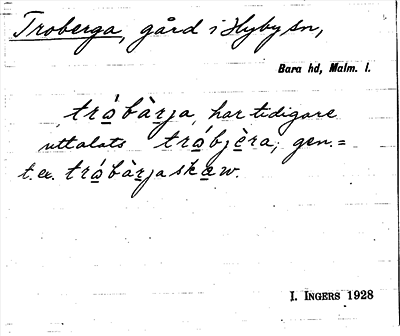 Troberga, gård i Hyby sn,
Bara hd, Malm. l.
tróbàrja, har tidigare
uttalats tróbjèra; gen. =
t. ex. tróbàrjaskæw.
I. INGERS 1928